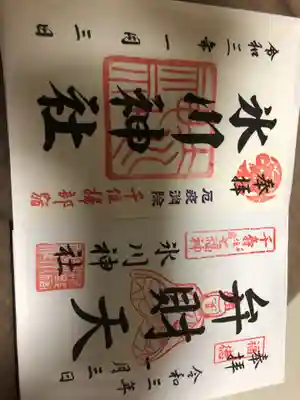 奉拝
氷川神社
令和三年一月三日
厄疫消除
千住掃部宿
奉拝
千寿七福神
弁財天
氷川神社
令和三年一月三日